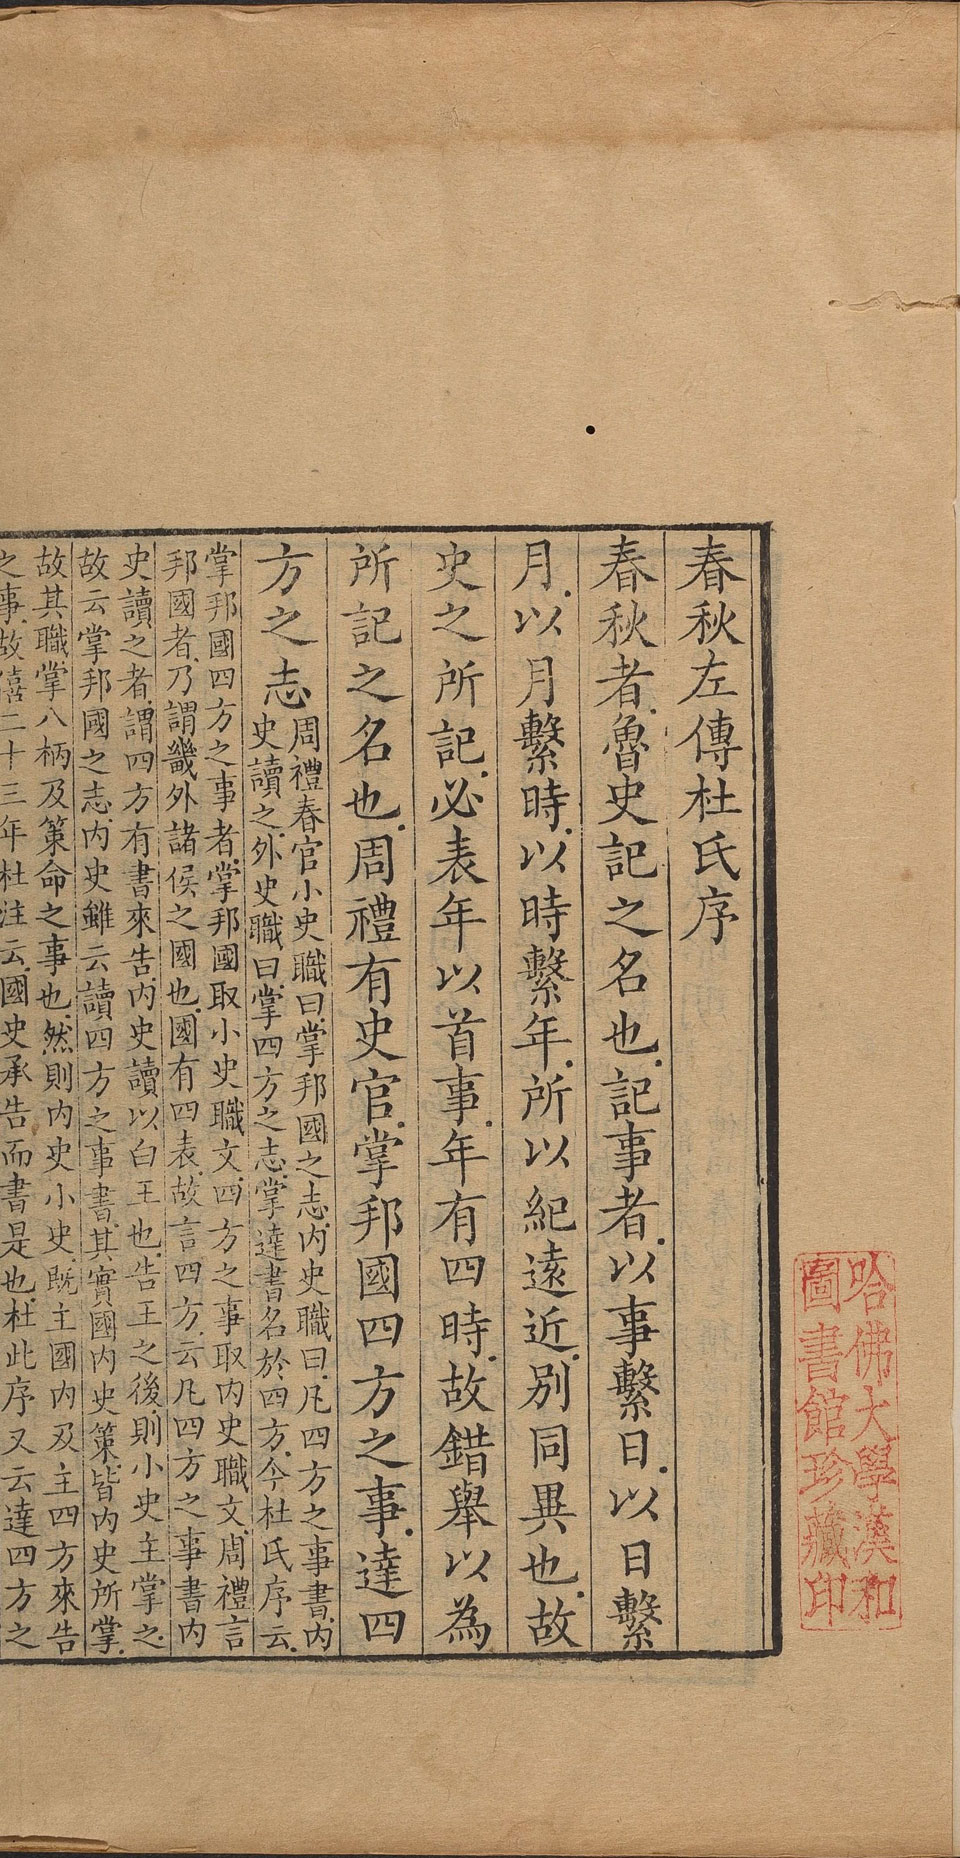 哈佛大學漢和
圖書館珍藏印
春秋左傳杜氏序
春秋者魯史記之名也記事者以事繫日以日繫
月以月繫時以時繫年所以紀遠近別同異也故
史之所記必表年以首事年有四時故錯舉以為
所記之名也周禮有史官掌邦國四方之事達四
方之志
周禮春官小史職曰掌邦國之志内史職曰凡四方之事書内
史讀之外史職曰掌四方之志掌達書名於四方今杜氏序云
掌邦國四方之事者掌邦國取小史職文四方之事取内史職文周禮言
邦國者乃謂畿外諸侯之國也國有四表故言四方云凡四方之事書内
史讀之者謂四方有書來告内史讀以白王也告王之後則小史主掌之
故云掌邦國之志内史雖云讀四方之事書其實國内史策皆内史所掌
故其職掌八柄及策命之事也然則内史小史既主國内及主四方來告
之事故僖二十三年杜注云國史承告而書是也杜此序又云達四方之